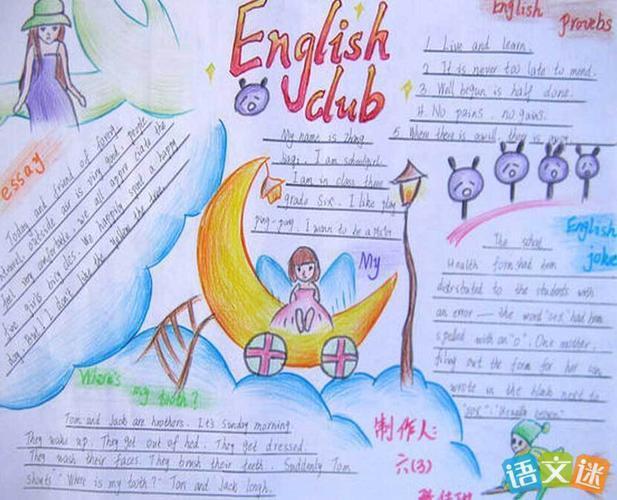 English
club
English
Proverbs
1. Live and learn.
2. It is never too late to mend.
3. Well begun is half done.
4. No pains, no gains.
5. Where there is a will, there is
My name is Zhang
I am
I am in class three
grade six. I like play
ping-pong. I want to be a
My
essay
Today and friend of
outside air is very good, people
feel very comfortable, we all
two girls We happily spend a happy
day. But, I don't like the
English
joke
The school
Health form had been
distributed to the students with
an error — the word "sex" had been
spelled with an "o". One mother,
filling out the form for her son,
wrote in the blank next to
Where's
my tooth?
Tom and Jack are brothers. It's Sunday morning.
They wake up. They get out of bed. They get dressed.
They wash their faces. They brush their teeth. Suddenly Tom
shouts "Where is my tooth?" Tom and Jack laugh.
制作人:
六(3)
语文迷